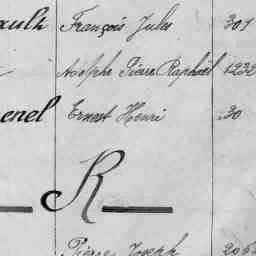 François Jules 307
Adolphe Pierre Raphaël 1232
enel Ernest Henri 30
R
Pierre Joseph